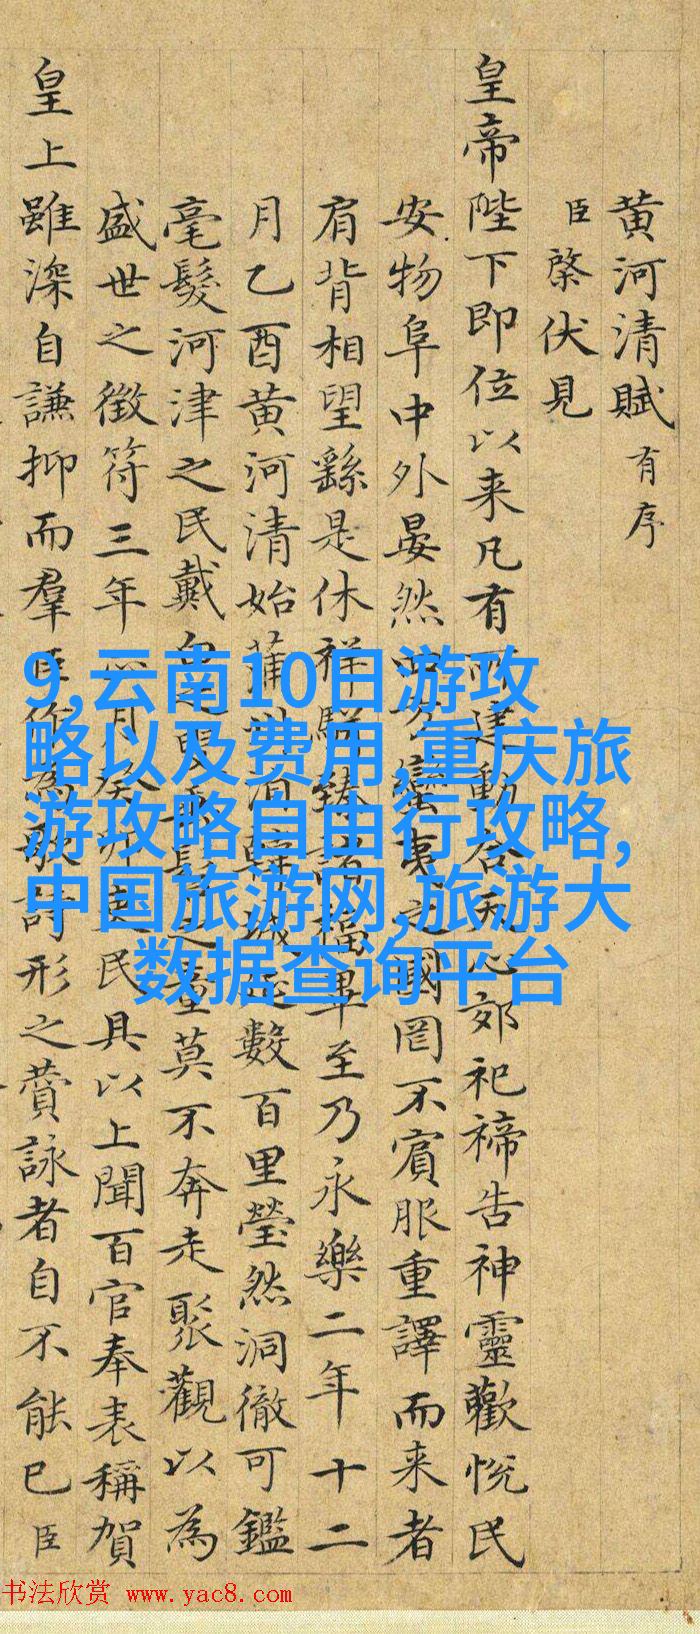 黄河清賦 有序
臣棨伏見
皇帝陛下即位以来凡有所建動合天心郊祀禘告神靈歡悦民
安物阜中外晏然四方蠻夷之國罔不賓服重譯而来者
肩背相望繇是休祥駢臻諸福畢至乃永樂二年十二
月乙酉黄河清始蒲韓城數百里瑩然洞徹可鑑
毫髮河津之民戴之叟之童莫不奔走聚觀以為
盛世之徵符三年月癸民具以上聞百官奉表稱賀
皇上雖深自謙抑而羣臣作為歌詩形之賛詠者自不能已臣
9,云南10日游攻
略以及费用,重庆旅
游攻略自由行攻略,
中国旅游网,旅游大
数据查询平台
书法欣赏 www.yac8.com